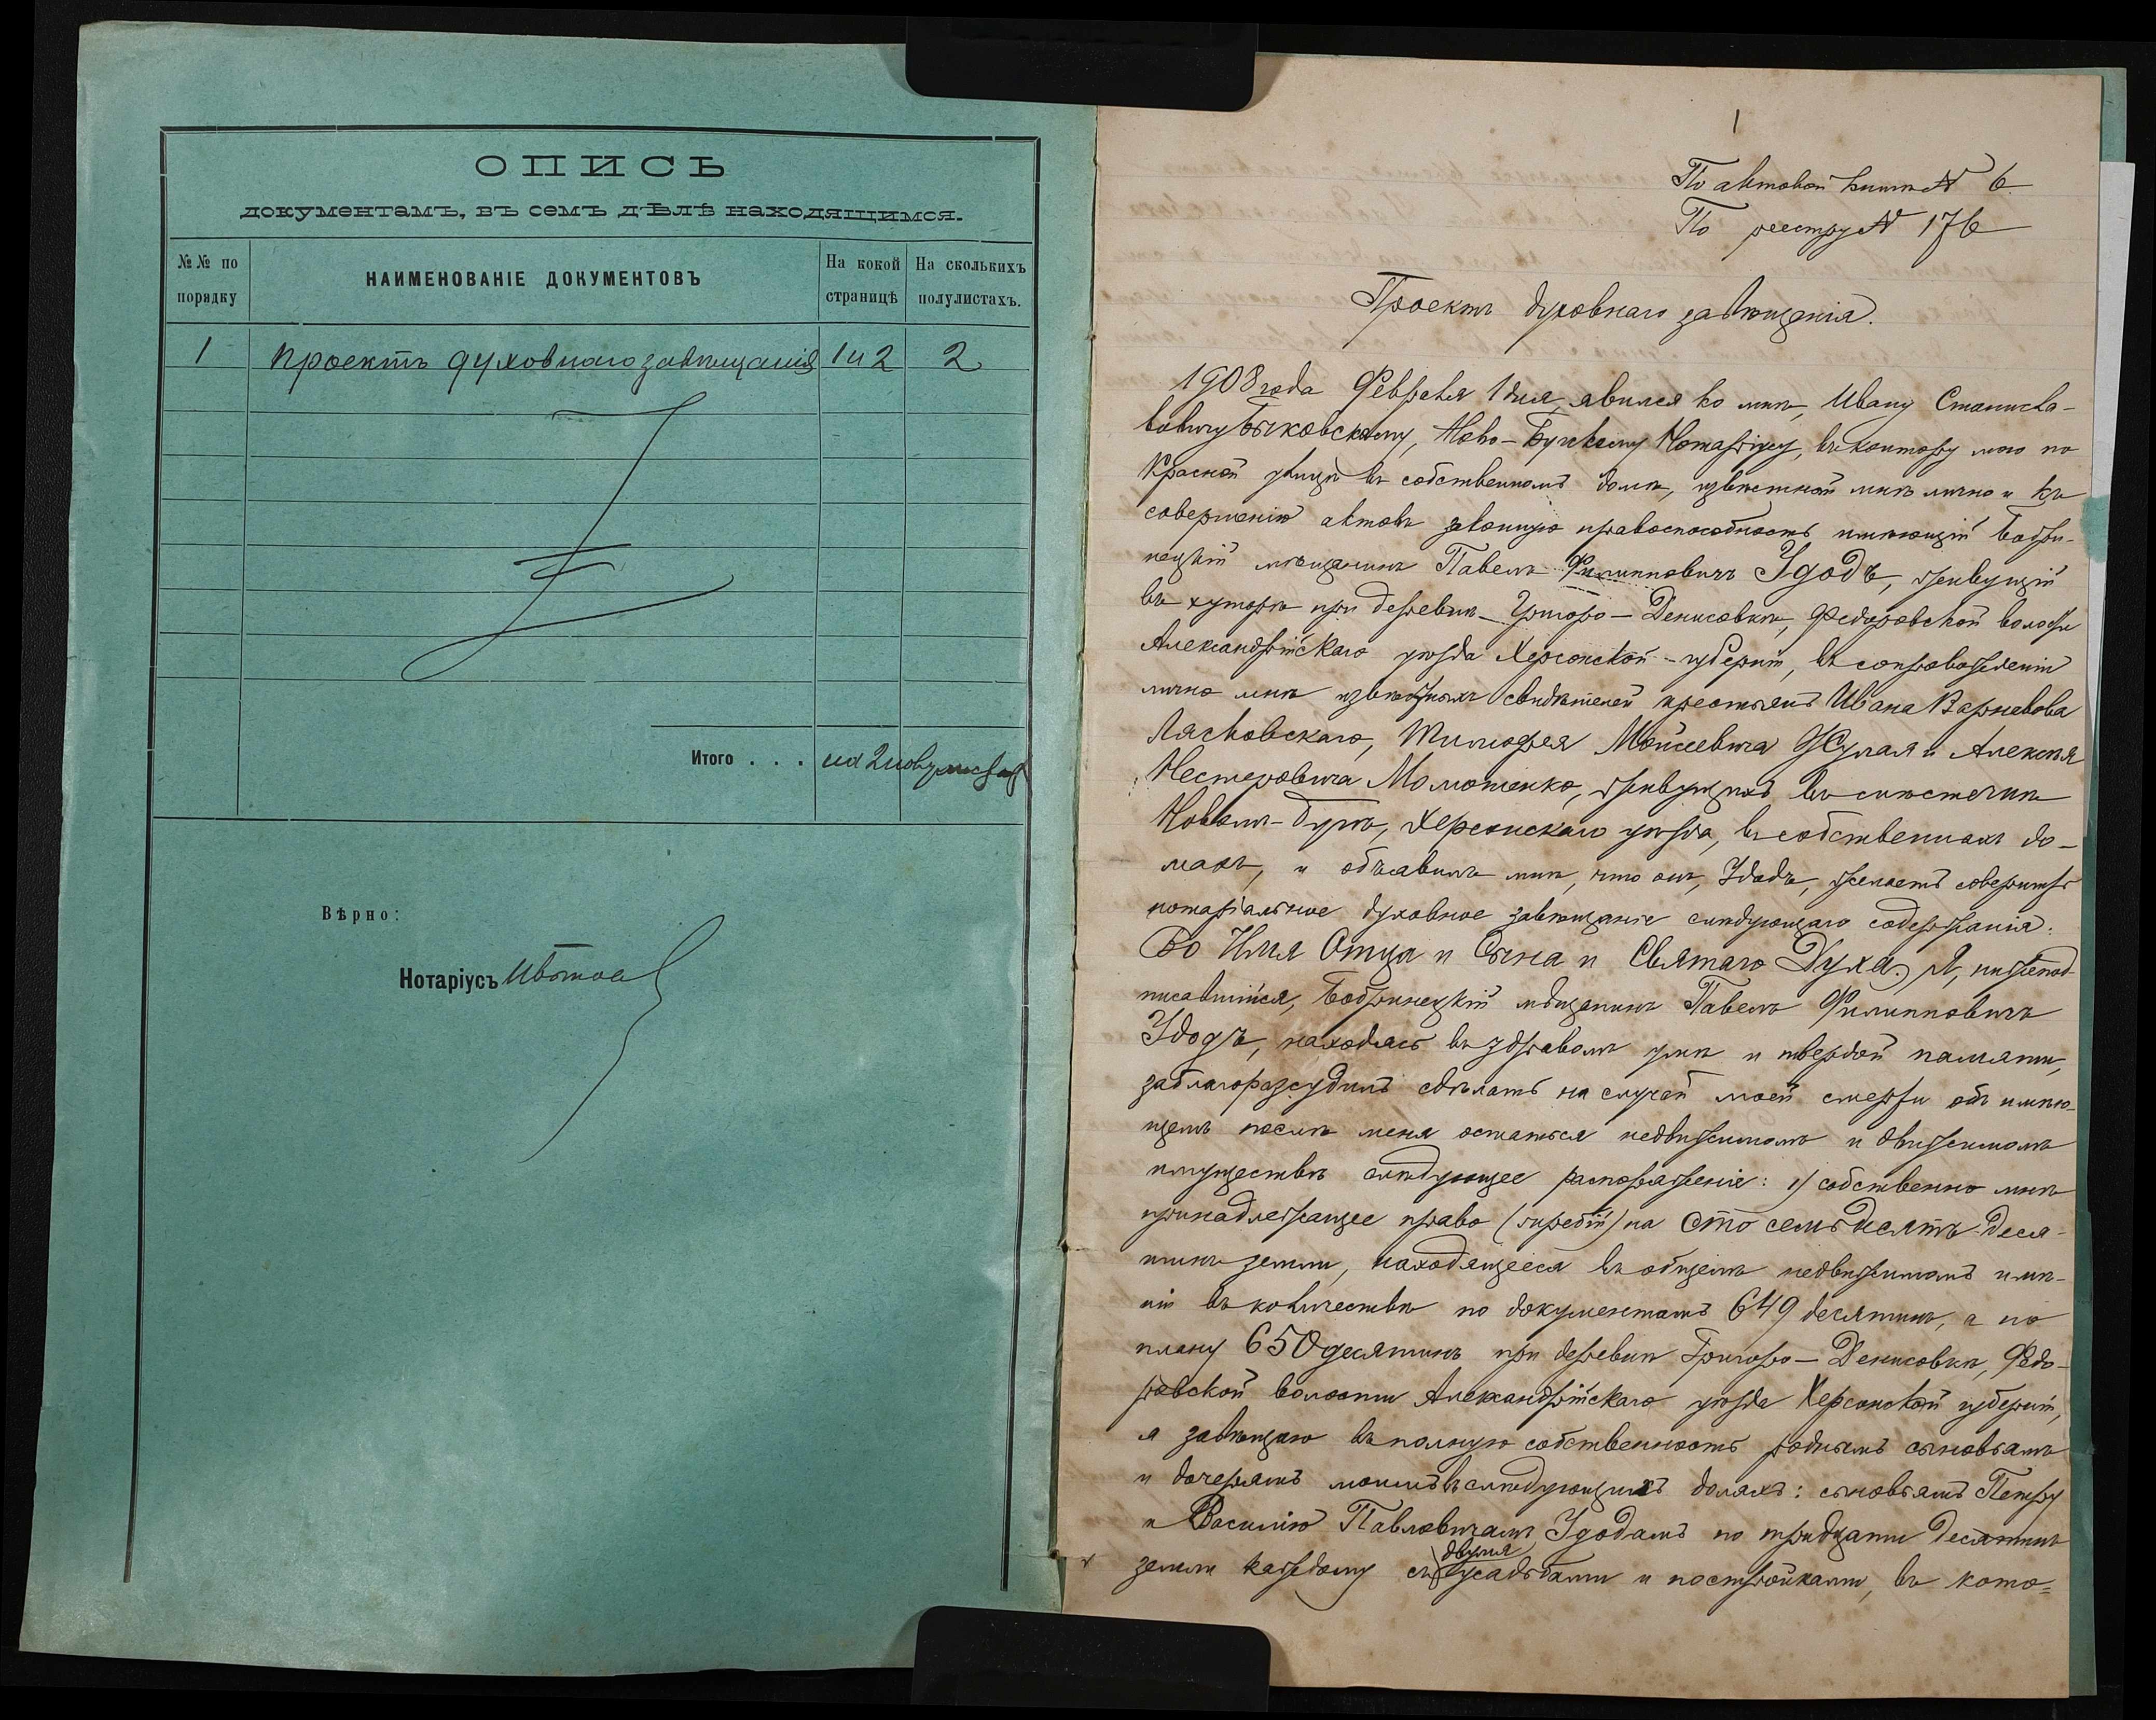 ОПИСЬ
документамъ, въ семъ дѣлѣ находящимся.
№№ по порядку
НАИМЕНОВАНІЕ ДОКУМЕНТОВЪ
На какой страницѣ
На сколькихъ полулистахъ.
1 Проектъ духовнаго завѣщанія 1 и 2 2
Итого . . . на 2 полулистахъ
Вѣрно:
Нотаріусъ
1
По актовой книгѣ № 6
По реестру № 176
Проектъ духовнаго завѣщанія.
1908 года Февраля 1 дня, явился ко мнѣ, Ивану Станисла-
вовичу Быковскому, Ново-Бугскому Нотаріусу, въ контору мою по
Красной улицѣ въ собственномъ домѣ, извѣстный мнѣ лично и къ
совершенію актовъ законную правоспособность имѣющій Бобри-
нецкій мѣщанинъ Павелъ Филипповичъ Удодъ, живущій
въ хуторѣ при деревнѣ Григоро-Денисовкѣ, Федоровской волости
Александрійскаго уѣзда Херсонской губерніи, въ сопровожденіи
лично мнѣ извѣстныхъ свидѣтелей крестьянъ Ивана
Лясковскаго, Тимофея Моисеевича и Алексѣя
Нестеровича Момотенко, живущихъ въ мѣстечкѣ
Новомъ-Бугѣ, Херсонскаго уѣзда, въ собственныхъ до-
махъ, и объявилъ мнѣ, что онъ, Удодъ, желаетъ совершить
нотаріальное духовное завѣщаніе слѣдующаго содержанія:
Во Имя Отца и Сына и Святаго Духа. Я, нижепод-
писавшійся, Бобринецкій мѣщанинъ Павелъ Филипповичъ
Удодъ, находясь въ здравомъ умѣ и твердой памяти,
заблагоразсудилъ сдѣлать на случай моей смерти объ имѣю-
щемъ послѣ меня остаться недвижимомъ и движимомъ
имуществѣ слѣдующее распоряженіе: 1) собственно мнѣ
принадлежащее право (жребій) на сто семьдесятъ деся-
тинъ земли, находящееся въ общемъ недвижимомъ имѣ-
ніи въ количествѣ по документамъ 649 десятинъ, а по
плану 650 десятинъ при деревнѣ Григоро-Денисовкѣ, Федо-
ровской волости Александрійскаго уѣзда Херсонской губерніи,
я завѣщаю въ полную собственность роднымъ сыновьямъ
и дочерямъ моимъ въ слѣдующихъ доляхъ: сыновьямъ Петру
и Василію Павловичамъ Удодамъ по тридцати десятинъ
земли каждому съ двумя усадьбами и постройками, въ кото=